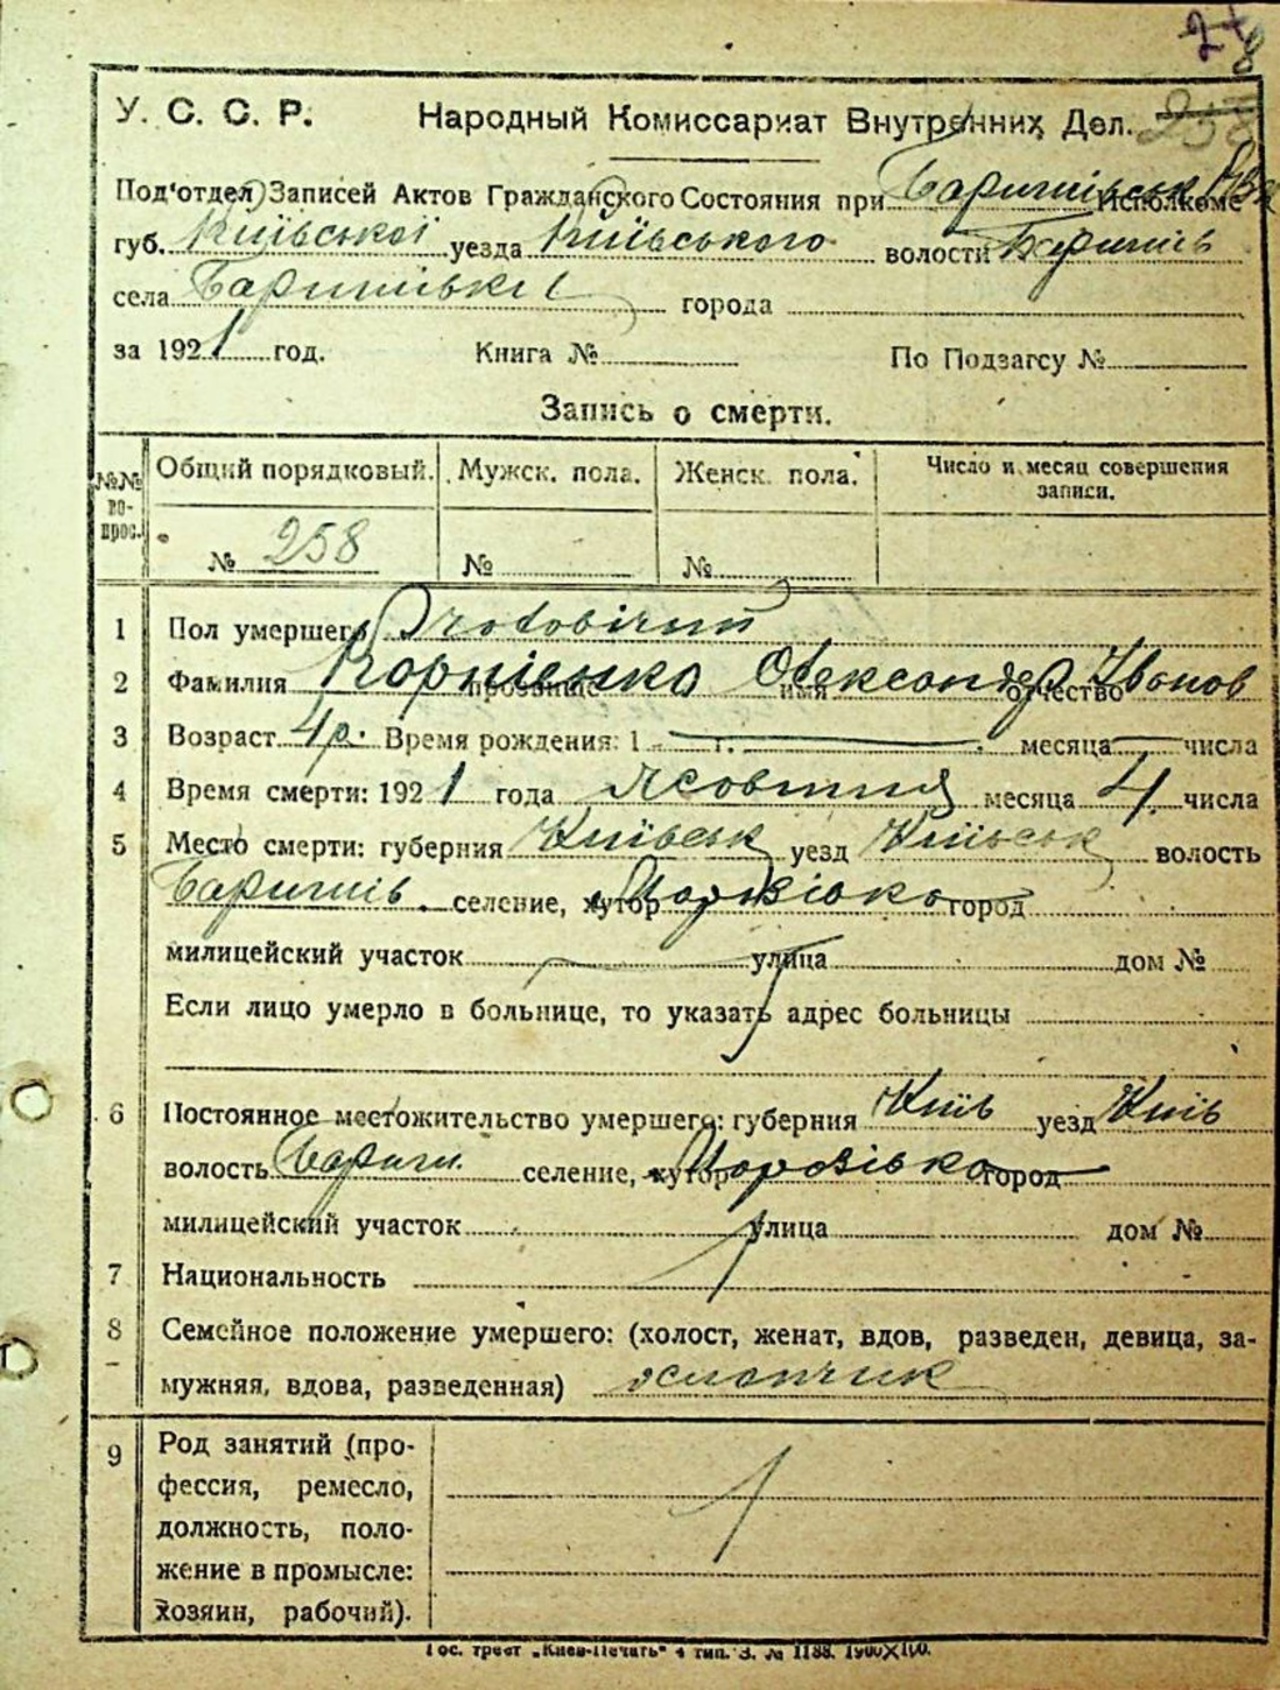 27
8
258
У. С. С. Р. Народный Комиссариат Внутренних Дел.
Под'отдел Записей Актов Гражданского Состояния при Баришівськ Исполкоме
губ. Київської уезда Київського волости Баришів
села Баришівки города
за 1921 год. Книга № По Подзагсу №
Запись о смерти.
№№ во-прос. Общий порядковый. Мужск. пола. Женск. пола. Число и месяц совершения записи.
№ 258 № №
1 Пол умершего Чоловічий
2 Фамилия Корнієнко прозвище имя Олександер отчество Іванов
3 Возраст 4 р. Время рождения: 1 г. месяца числа
4 Время смерти: 1921 года жовтня месяца 4 числа
5 Место смерти: губерния Київськ уезд Київськ волость
Баришів. селение, хутор город
милицейский участок улица дом №
Если лицо умерло в больнице, то указать адрес больницы
6 Постоянное местожительство умершего: губерния Київ уезд Київ
волость Бариш. селение, хутор город
милицейский участок улица дом №
7 Национальность
8 Семейное положение умершего: (холост, женат, вдов, разведен, девица, за-
мужняя, вдова, разведенная) хлопчик
9 Род занятий (про-
фессия, ремесло,
должность, поло-
жение в промысле:
хозяин, рабочий).
Гос. трест „Киев-Печать" 4 тип. З. № 1188. 1900×100.